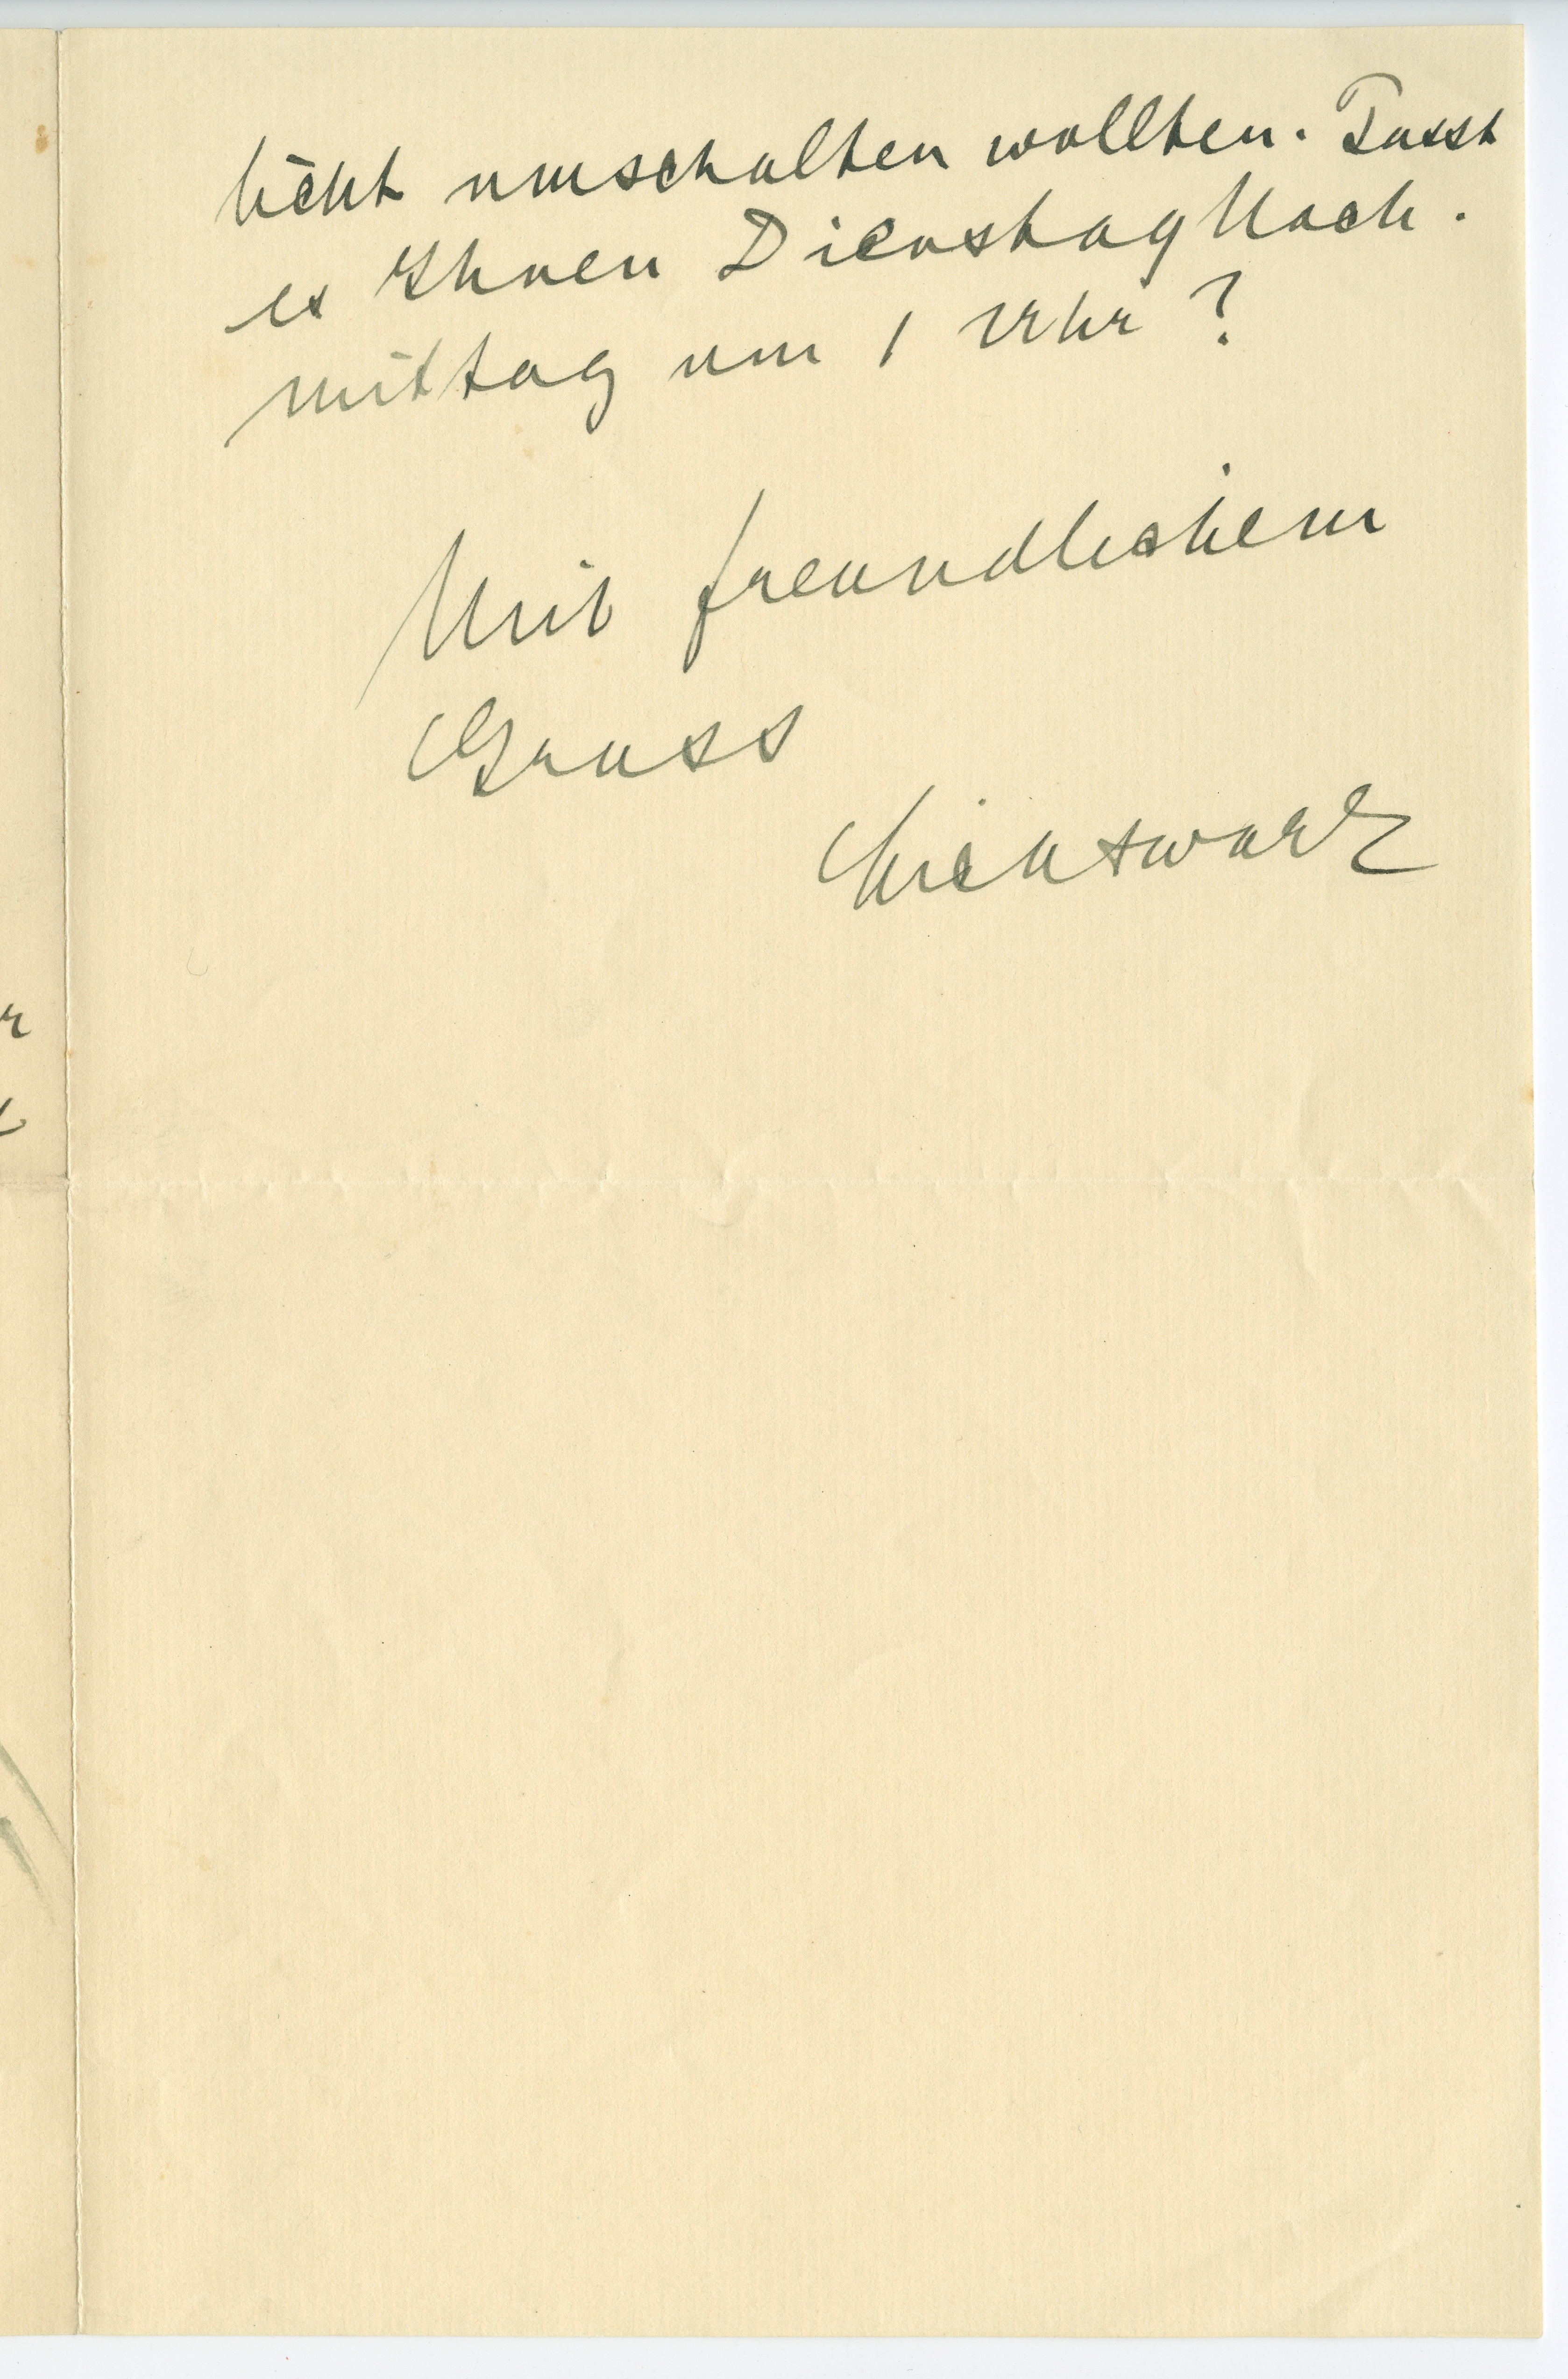 licht umschalten wollten. Passt
es Ihnen Dienstag Nach.
mittag um 1 Uhr?
Mit freundlichem
Gruss
Lichtwark